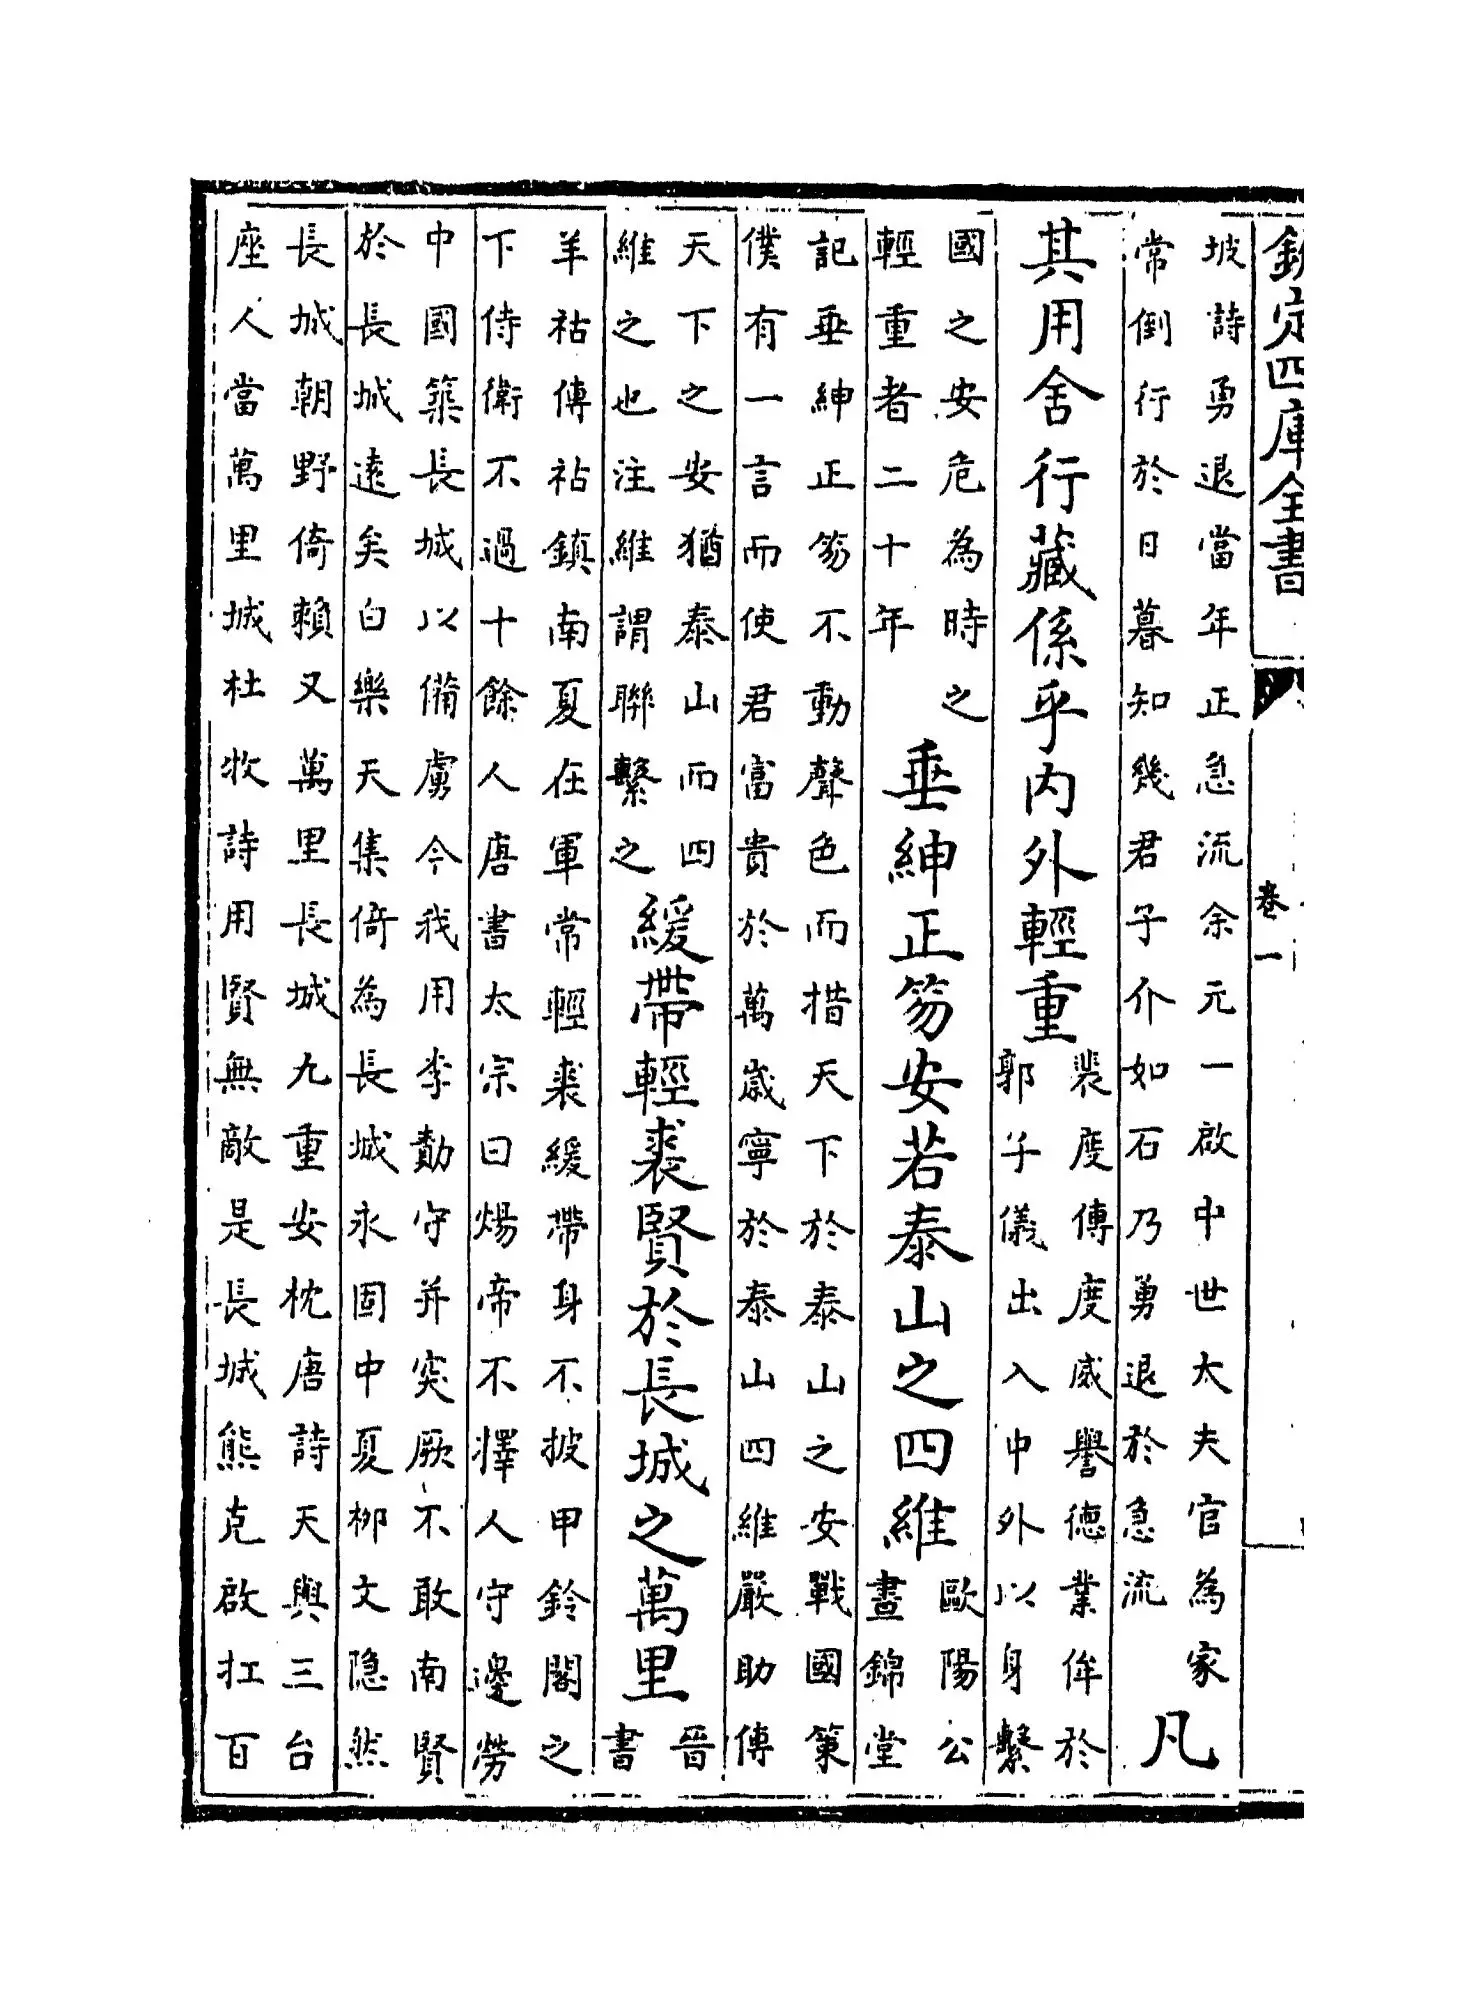 欽定四庫全書
卷一
坡詩勇退當年正急流余元一啟中世士大夫官為家
常倒行於日暮知幾君子介如石乃勇退於急流
凡
其用舍行藏係乎内外輕重
裴度傳度威譽德業侔於
郭子儀出入中外以身繫
國之安危為時之
輕重者二十年
垂紳正笏安若泰山之四維
歐陽公
晝錦堂
記垂紳正笏不動聲色而措天下於泰山之安戰國策
僕有一言而使君富貴於萬歲寧於泰山四維嚴助傳
天下之安猶泰山而四
維之也注維謂聯繫之
緩帶輕裘賢於長城之萬里
晉
書
羊祜傳祜鎮南夏在軍常輕裘緩帶身不披甲鈴閣之
下侍衛不過十餘人唐書太宗曰煬帝不擇人守邊勞
中國築長城以備虜今我用李勣守并突厥不敢南賢
於長城遠矣白樂天集倚為長城永固中夏柳文隐然
長城朝野倚賴又萬里長城九重安枕唐詩天與三台
座人當萬里城杜牧詩用賢無敵是長城熊克啟扛百